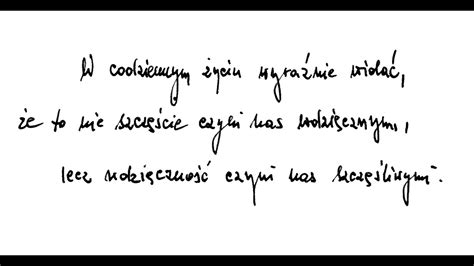 W codziennym życiu wyraźnie widać,
że to nie szczęście czyni nas wdzięcznymi,
lecz wdzięczność czyni nas szczęśliwymi.